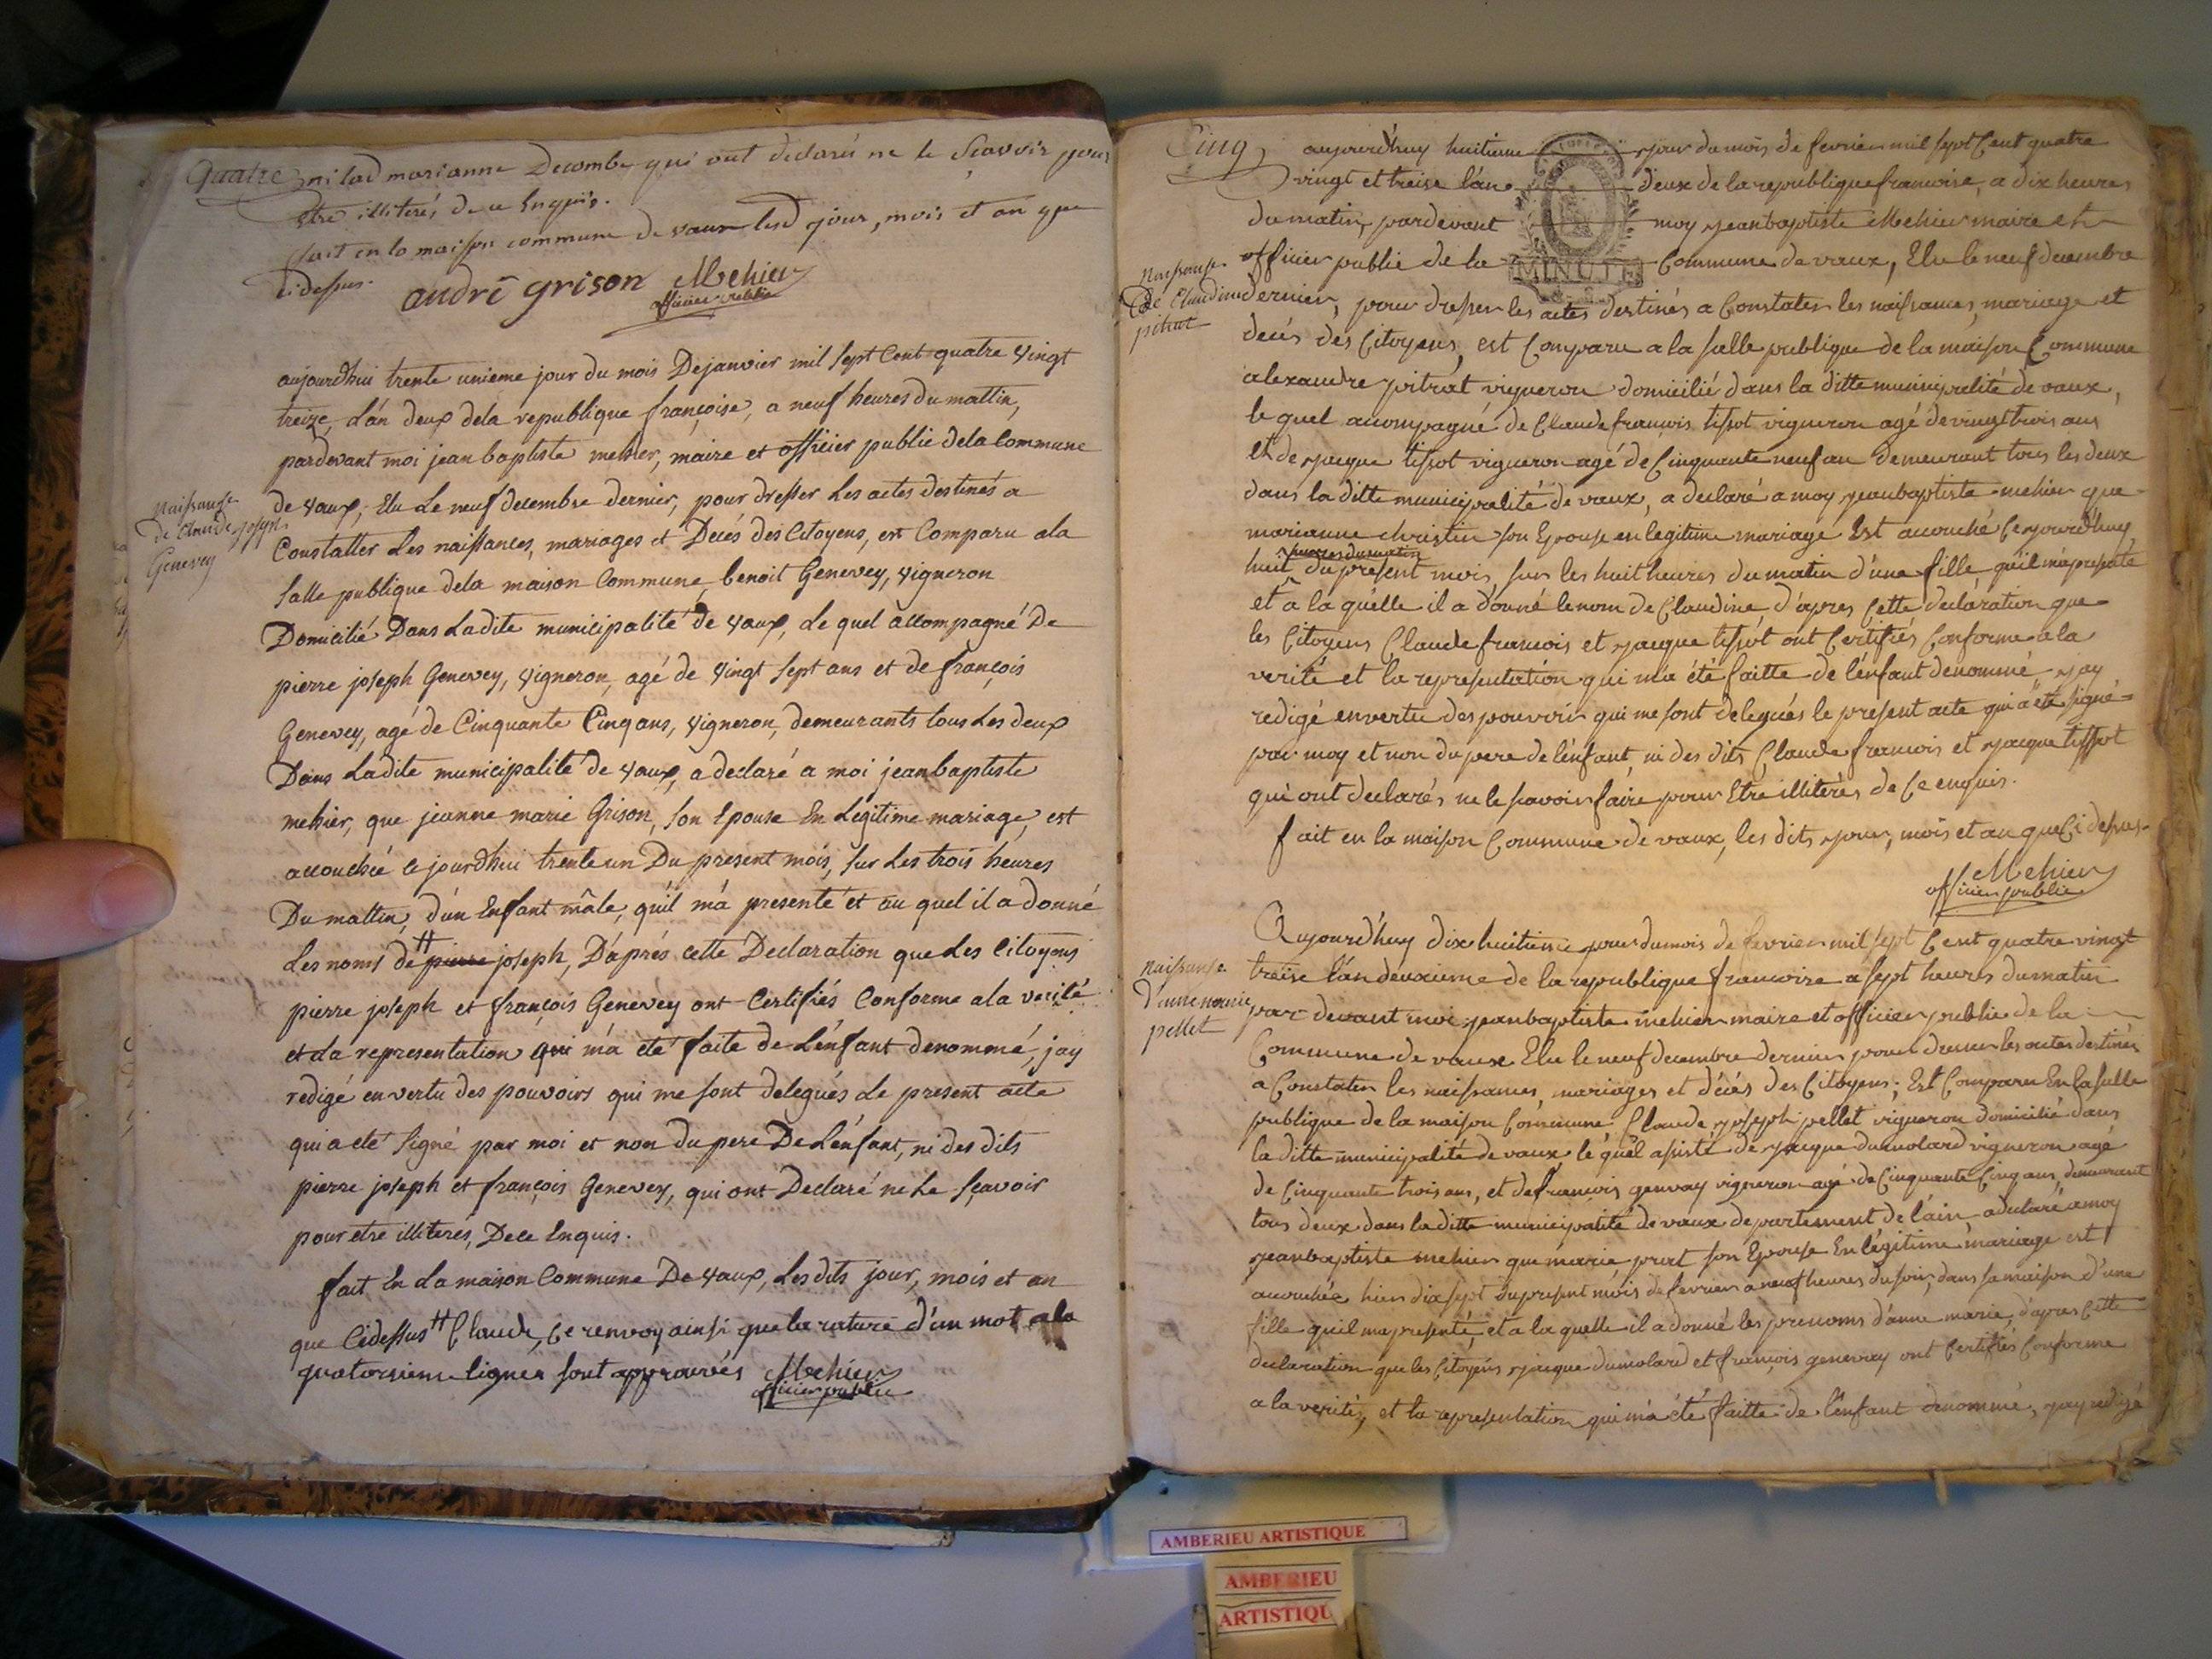 Quatre ni lad marianne Decombe qui ont declaré ne le Sçavoir pour
être illiterés de ce Enquis.
fait en la maison commune de vaux lesd jour, mois et an que
cidessus.
andré grison Mehier
officier public
Naissance
de Claude joseph
Genevey
aujourdhui trente unieme jour du mois Dejanvier mil sept Cent quatre vingt
treize, L'an deux dela republique françoise, a neuf heures du mattin,
pardevant moi jean baptiste mehier, maire et officier public dela Commune
de vaux, Elu Le neuf decembre dernier, pour dresser Les actes destinés a
Constatter Les naissances, mariages et Décés des Citoyens, est Comparu ala
salle publique dela maison Commune, benoit Genevey, vigneron
Domicilié Dans Ladite municipalité de vaux, Le quel accompagné De
pierre joseph Genevey, vigneron, agé de vingt sept ans et de françois
Genevey, agé de Cinquante Cinq ans, vigneron, demeurants tous Les deux
Dans Ladite municipalité de vaux, a declaré a moi jeanbaptiste
mehier, que jeanne marie Grison, son Epouse En Légitime mariage, est
accouchée cejourdhui trente un Du present mois, sur Les trois heures
Du mattin, d'un Enfant mâle, qu'il m'a presenté et au quel il a donné
Les noms de # pierre joseph, D'aprés cette Declaration que Les Citoyens
pierre joseph et françois Genevey ont Certifiés Conforme ala verité
et La representation qui m'a eté faite de L'énfant denommé, jay
redigé en vertu des pouvoirs qui me sont delegués Le present acte
qui a eté signé par moi et non du pere De L'énfant, ni des dits
pierre joseph et françois Genevey, qui ont Declaré ne Le sçavoir
pour etre illiterés, De ce Enquis.
fait En La maison Commune De vaux, Lesdits jour, mois et an
que Cidessus # Claude, ce renvoy ainsi que la rature d'un mot ala
quatorsieme ligne sont approuvés Mehier
officier public
Cinq aujourd'huy huitieme jour du mois de fevrier mil sept Cent quatre
vingt et treise l'an deux de la republique francoise, a dix heures
du matin, pardevant moy jeanbaptiste Mehier maire et
officier public de la Commune de vaux, Elu le neuf decembre
MINUTE
Naissance
de Claudine
pitrat
dernier, pour dresser les actes destinés a Constater les naissances, mariage et
decés des Citoyens, est Comparu a la salle publique de la maison Commune
alexandre pitrat vigneron domicilié dans la ditte municipalité de vaux,
le quel accompagné de Claude francois tissot vigneron agé de vingt trois ans
et de jacque tissot vigneron agé de Cinquante neuf an demeurant tous les deux
dans la ditte municipalité de vaux, a declaré a moy jeanbaptiste mehier que
marianne christin son Epouse en legitime mariage Est accouché Cejourd'huy
huit du present mois, sur les huit heures du matin d'une fille qu'il m'a presenté
et a la qu'elle il a donné le nom de Claudine d'apres Cette declaration que
les Citoyens Claude francois et jacque tissot ont Certifiés Conforme a la
verité et la representation qui m'a été faitte de l'enfant denommé jay
redigé en vertu des pouvoir qui me sont delegués le present acte qui a eté signé
par moy et non du pere de l'enfant, ni des dits Claude francois et jacque tissot
qui ont declarés ne le savoir faire pour Etre illiterés de Ce enquis.
fait en la maison Commune de vaux, les dits jour, mois et an que Ci dessus
Mehier
officier public
Naissance
d'anne marie
pellet
Aujourd'huy dix huitieme jour du mois de fevrier mil sept Cent quatre vingt
treise l'an deuxieme de la republique francoise a sept heures du matin
par devant moi jeanbaptiste mehier maire et officier public de la
Commune de vaux Elu le neuf decembre dernier pour dresser les actes destinés
a Constater les naissances, mariages et décés des Citoyens; Est Comparu En la salle
publique de la maison Commune Claude joseph pellet vigneron domicilié dans
la ditte municipalité de vaux le quel assisté de jacque dumolard vigneron agé
de Cinquante trois ans, et de francois genvay vigneron agé de Cinquante Cinq ans, demeurant
tous deux dans la ditte municipalité de vaux departement de l'ain a declaré a moy
jeanbaptiste mehier que marie prat son Epouse En légitime mariage est
accouchée hier dix sept du present mois de fevrier a neuf heures du soir, dans sa maison d'une
fille quil ma presenté, et a la quelle il a donné les prenoms d'anne marie, d'apres Cette
declaration que les Citoyens jacque dumolard et françois genevay ont Certifiés Conforme
a la verité, et la representation qui m'a été faitte de l'enfant denommé, jay redigé
AMBERIEU ARTISTIQUE
AMBERIEU
ARTISTIQU